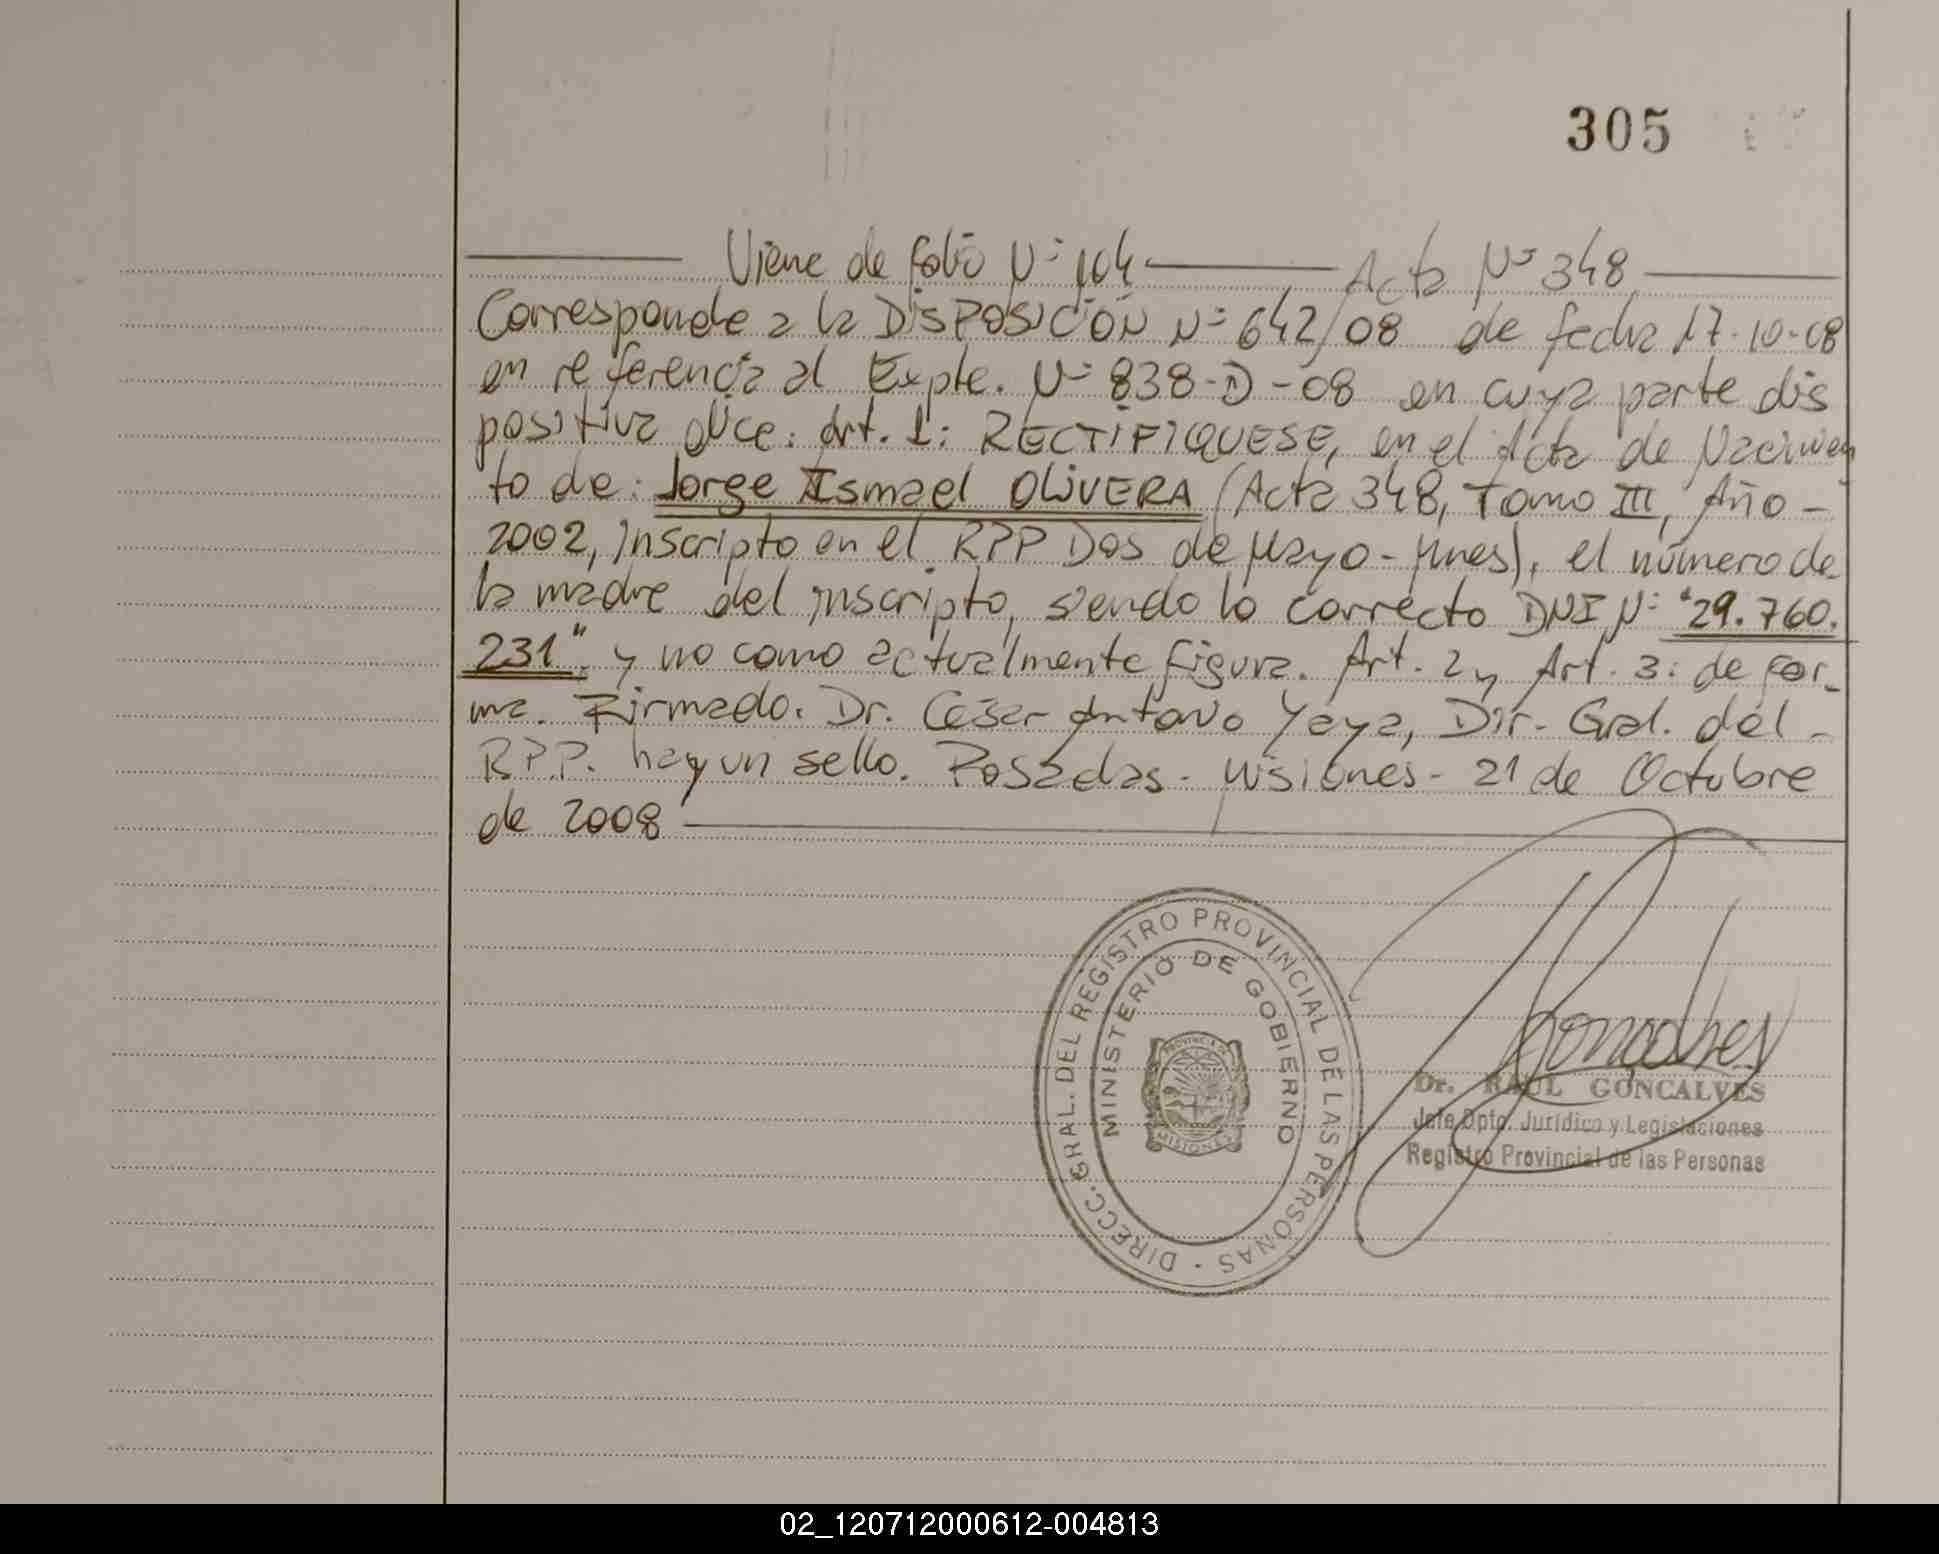 305
Viene de folio Nº 104 Acta Nº 348
Corresponde a la DISPOSICIÓN Nº 642/08 de fecha 17-10-08
en referencia al Expte. Nº 838-D-08 en cuya parte dis
positiva dice: Art. 1: RECTIFIQUESE, en el Acta de Nacimien
to de: Jorge Ismael OLIVERA (Acta 348, Tomo III, Año -
2002, Inscripto en el RPP Dos de Mayo - Mnes), el número de
la madre del inscripto, siendo lo correcto DNI Nº "29.760.
231" y no como actualmente figura. Art. 2 y Art. 3: de for-
ma. Firmado. Dr. César Antonio Yaya, Dir. Gral. del -
RPP. hay un sello. Posadas - Misiones - 21 de Octubre
de 2008
DIRECC. GRAL. DEL REGISTRO PROVINCIAL DE LAS PERSONAS -
MINISTERIO DE GOBIERNO
PROVINCIA DE
MISIONES
Dr. RAUL GONCALVES
Jefe Dpto. Jurídico y Legislaciones
Registro Provincial de las Personas
02_120712000612-004813